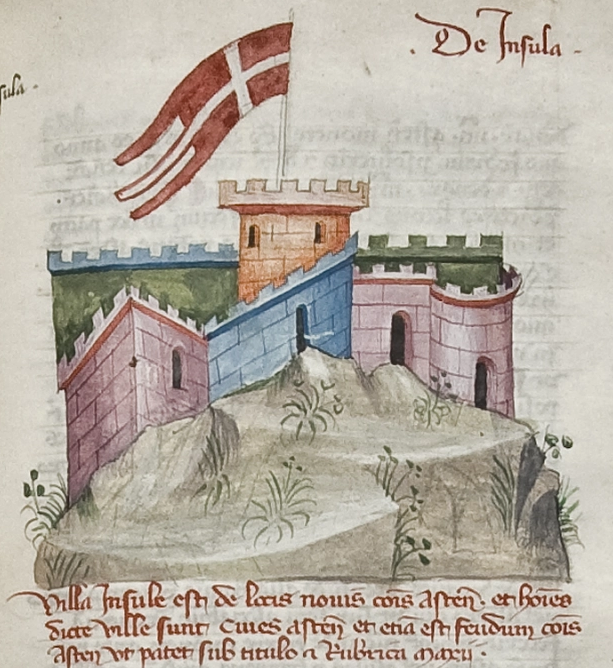 De Insula
sula
Villa Insule est de locis novis cois Asten. et hoies
dicte ville sunt Cives asten et etia est feudum cois
Asten vt patet sub titulo a Rubrica